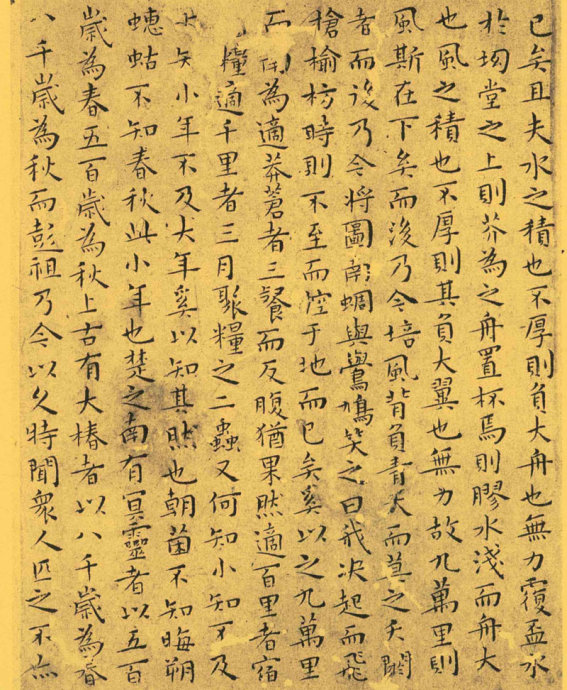 已矣且夫水之積也不厚則負大舟也無力覆盃水
於坳堂之上則芥為之舟置杯焉則膠水淺而舟大
也風之積也不厚則其負大翼也無力故九萬里則
風斯在下矣而後乃今培風背負青天而莫之夭閼
者而後乃今將圖南蜩與鷽鳩笑之曰我决起而飛
槍榆枋時則不至而控于地而已矣奚以之九萬里
而南為適莽蒼者三餐而反腹猶果然適百里者宿
糧適千里者三月聚糧之二蟲又何知小知不及
大知小年不及大年奚以知其然也朝菌不知晦朔
蟪蛄不知春秋此小年也楚之南有冥靈者以五百
歲為春五百歲為秋上古有大椿者以八千歲為春
八千歲為秋而彭祖乃今以久特聞衆人匹之不亦